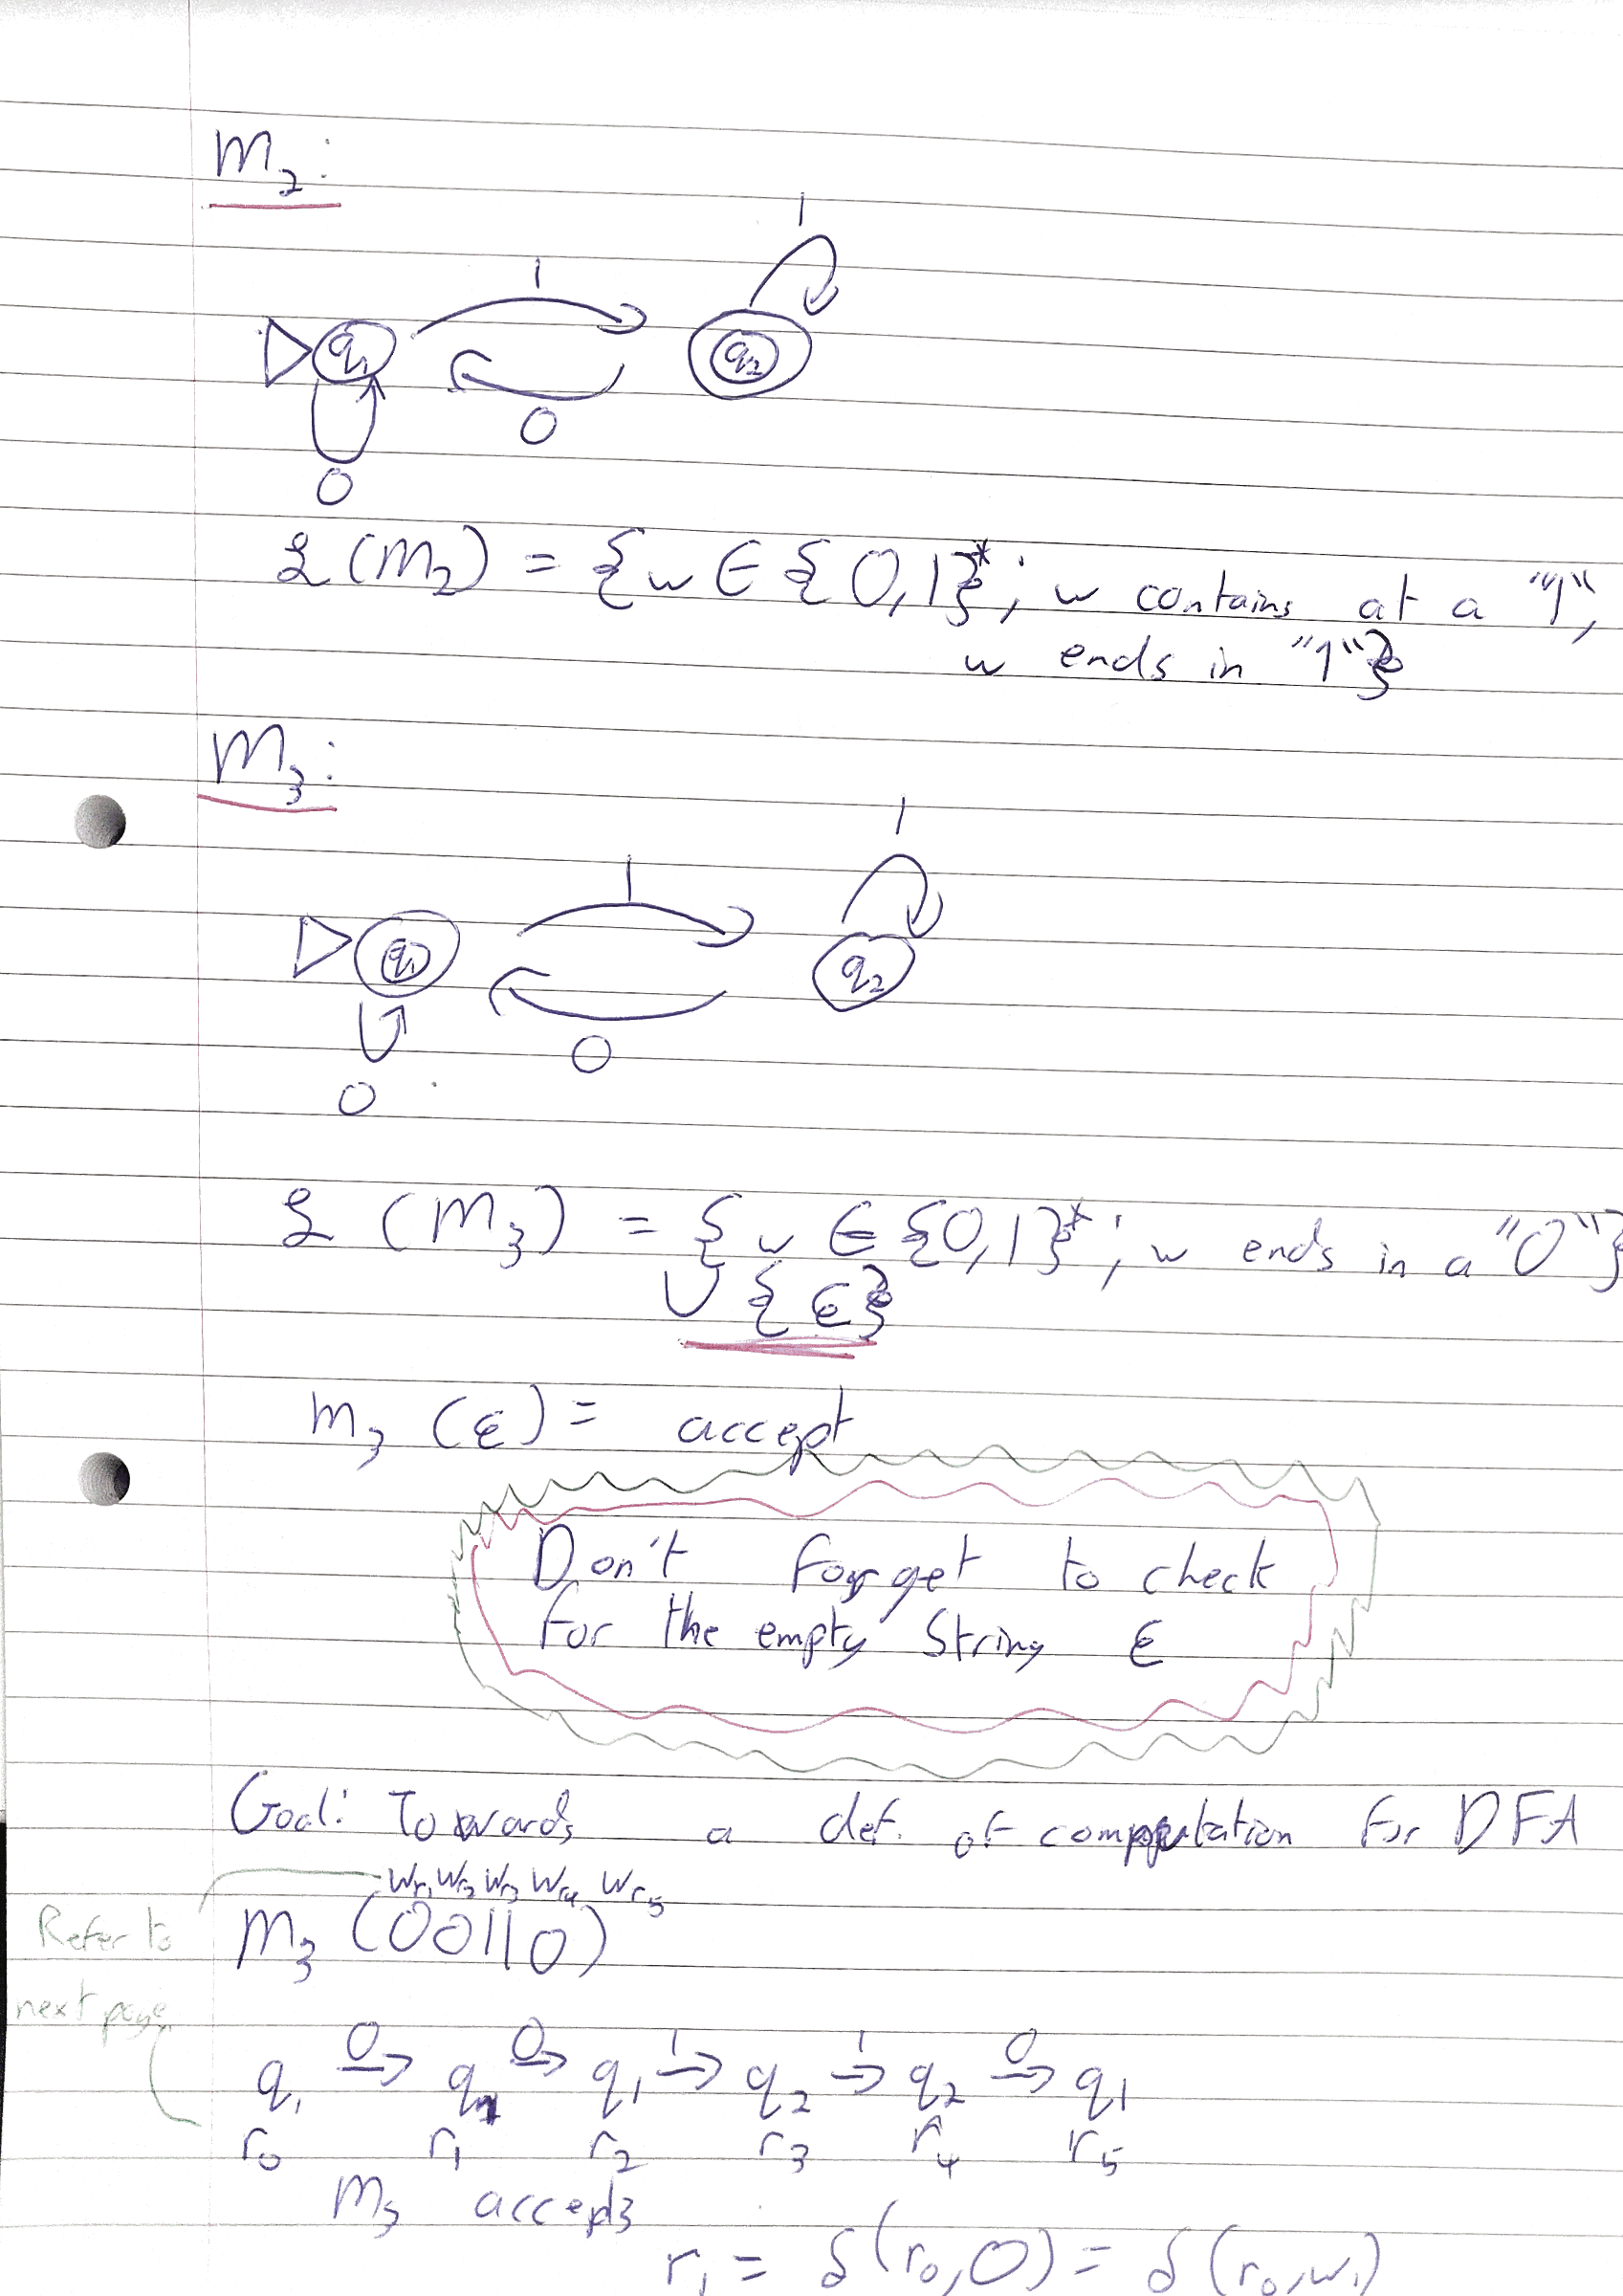 M₂:
1
1
q₁
q₂
0
0
L(M₂) = {w ∈ {0,1}*; w contains at a "1",
w ends in "1"}
M₃:
1
1
q₁
q₂
0
0
L (M₃) = {w ∈ {0,1}*; w ends in a "0"}
∪ {ε}
M₃ (ε) = accept
Don't forget to check
for the empty string ε
Goal: Towards a def. of computation for DFA
Wr₁ Wr₂ Wr₃ Wr₄ Wr₅
Refer to
next page
M₃ (00110)
q₁ 0→ q₁ 0→ q₁ 1→ q₂ 1→ q₂ 0→ q₁
r₀ r₁ r₂ r₃ r₄ r₅
M₃ accepts
r₁ = δ(r₀,0) = δ(r₀,w₁)